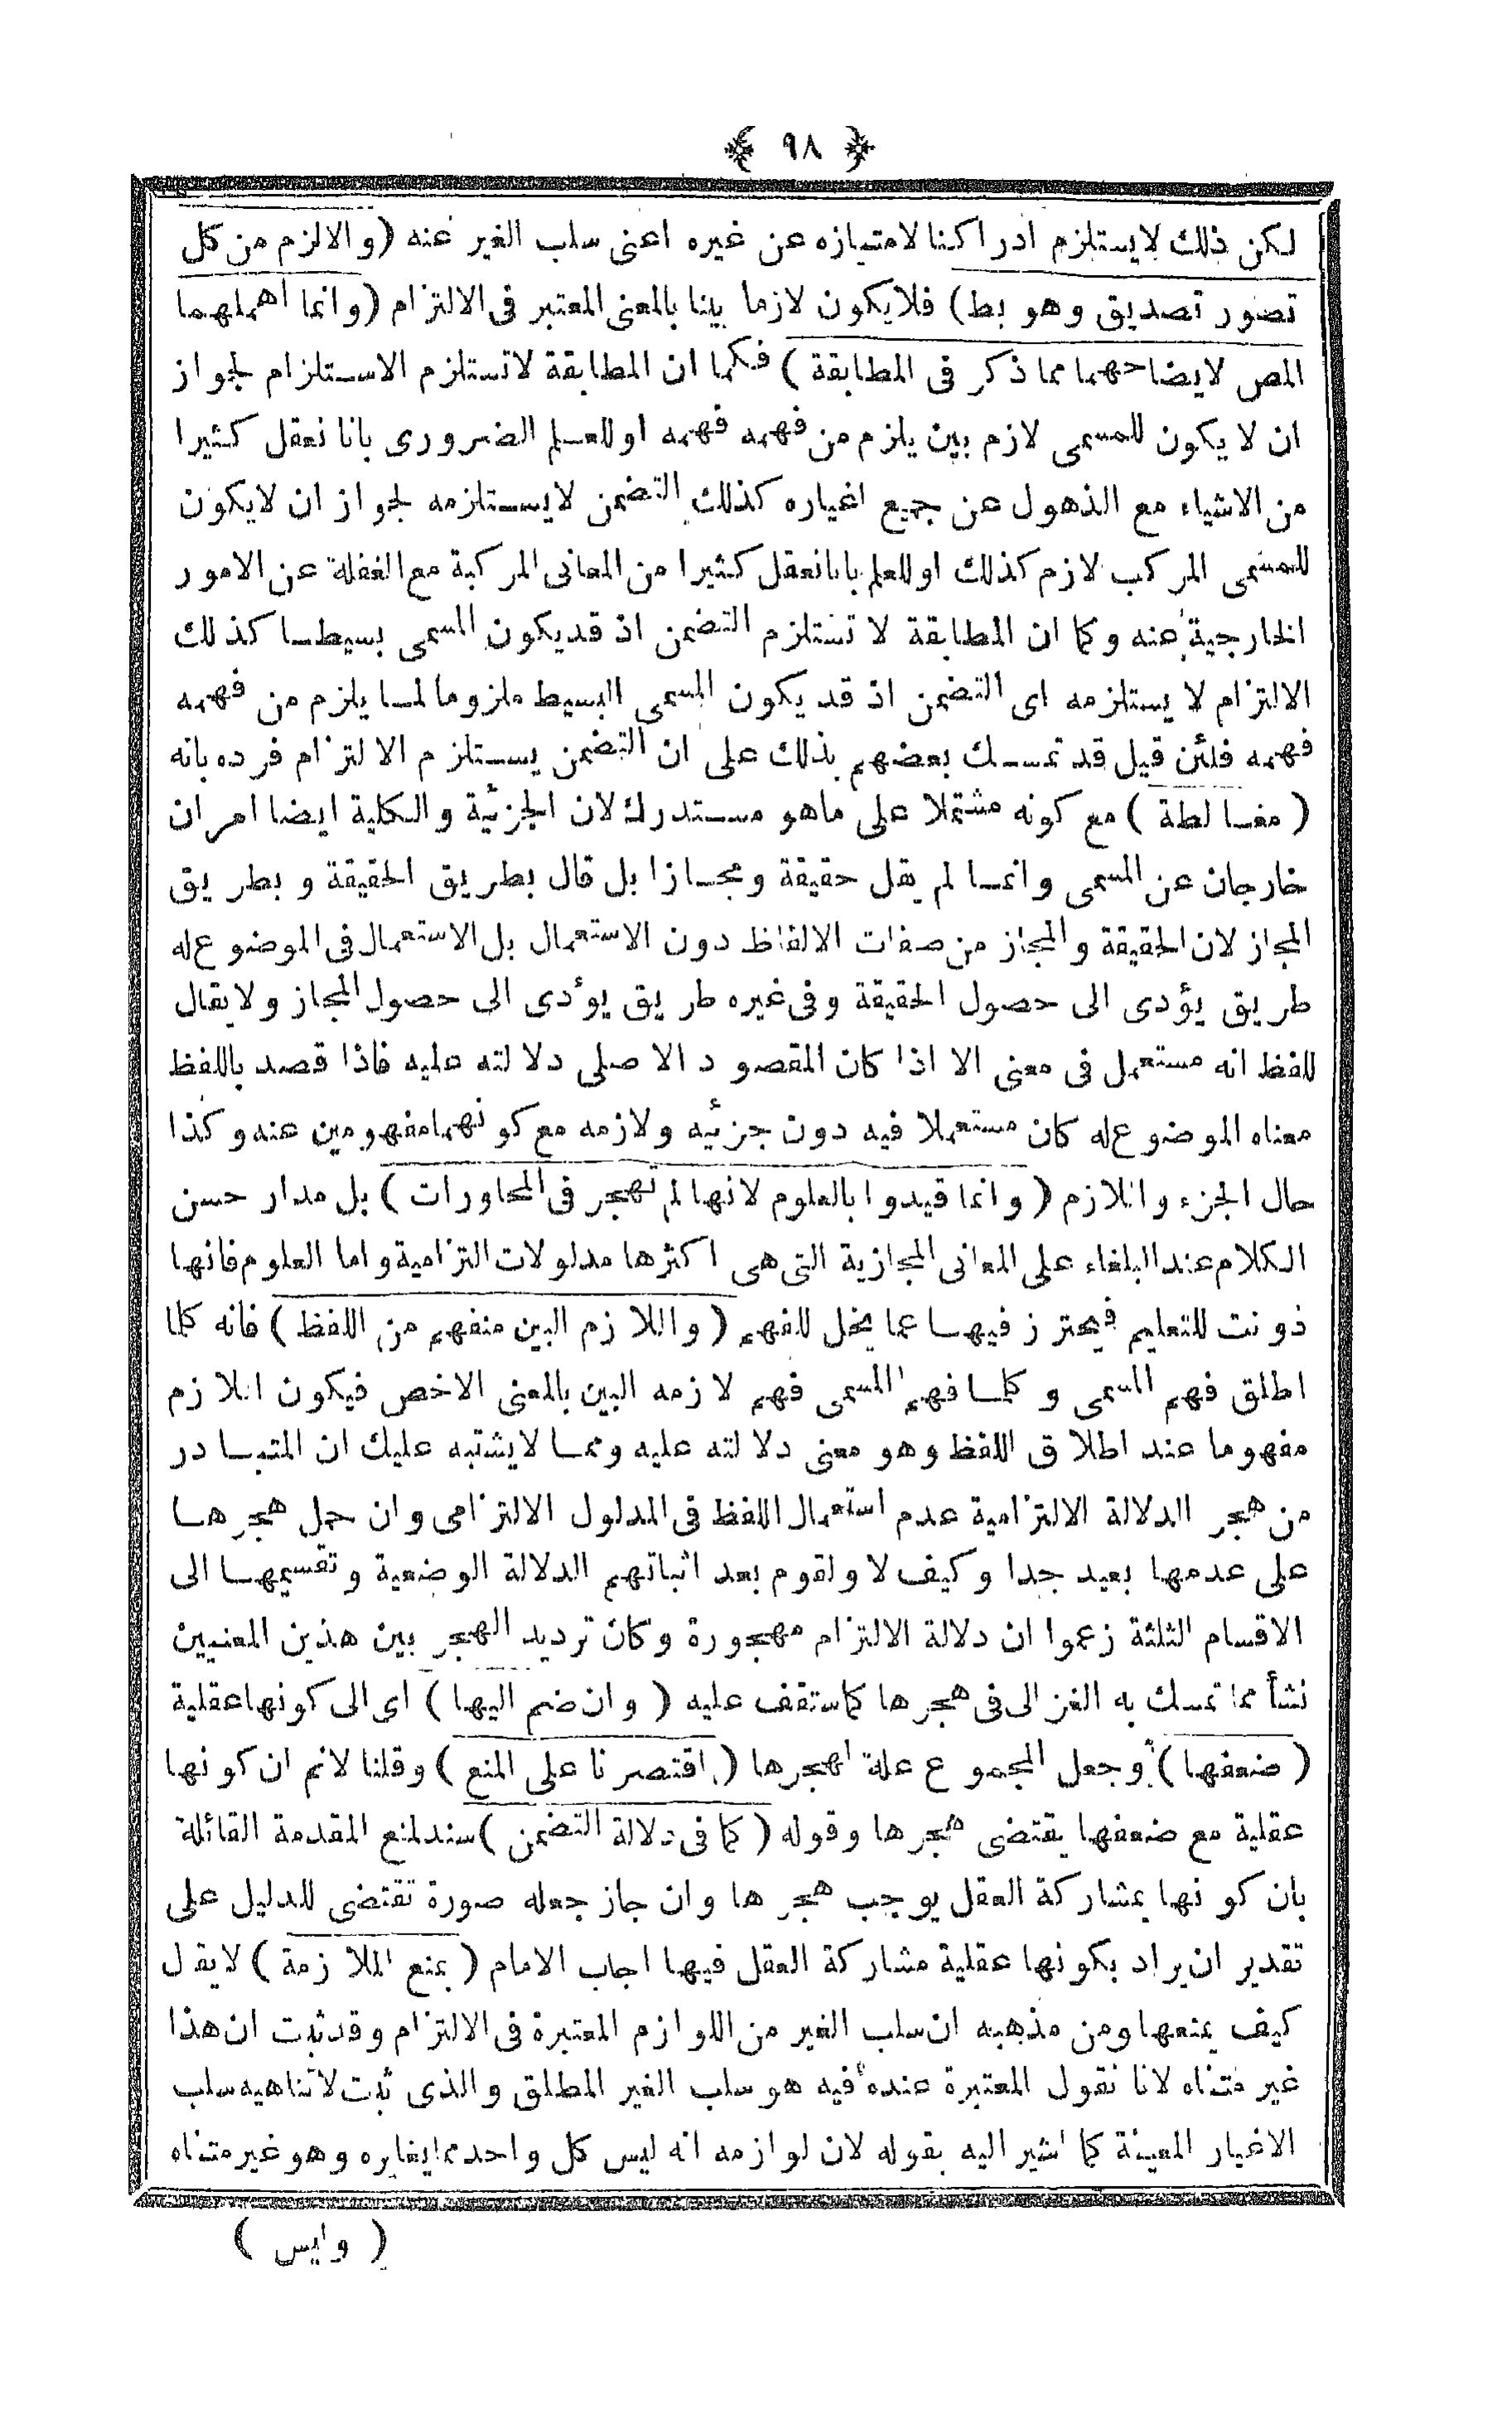 ﴿ ٩٨ ﴾
لكن ذلك لايستلزم ادراكنا لامتيازه عن غيره اعنى سلب الغير عنه (والالزم من كل
تصور تصديق وهو بط) فلايكون لازما بينا بالمعنى المعتبر فى الالتزام (وانما اهملهما
المص لايضاحهما مما ذكر فى المطابقة) فكما ان المطابقة لاتستلزم الاستلزام لجواز
ان لا يكون للمسمى لازم بين يلزم من فهمه فهمه اوللعلم الضرورى بانا نعقل كثيرا
من الاشياء مع الذهول عن جميع اغياره كذلك التضمن لايستلزمه لجواز ان لايكون
للمسمى المركب لازم كذلك اوللعلم بانانعقل كثيرا من المعانى المركبة مع الغفلة عن الامور
الخارجية عنه وكما ان المطابقة لا تستلزم التضمن اذ قديكون المسمى بسيطا كذلك
الالتزام لا يستلزمه اى التضمن اذ قد يكون المسمى البسيط ملزوما لما يلزم من فهمه
فهمه فلئن قيل قد تمسك بعضهم بذلك على ان التضمن يستلزم الالتزام فرده بانه
(مغالطة) مع كونه مشتملا على ماهو مستدرك لان الجزئية والكلية ايضا امران
خارجان عن المسمى وانما لم يقل حقيقة ومجازا بل قال بطريق الحقيقة وبطريق
المجاز لان الحقيقة والمجاز من صفات الالفاظ دون الاستعمال بل الاستعمال فى الموضوع له
طريق يؤدى الى حصول الحقيقة وفى غيره طريق يؤدى الى حصول المجاز ولايقال
للفظ انه مستعمل فى معنى الا اذا كان المقصود الاصلى دلالته عليه فاذا قصد باللفظ
معناه الموضوع له كان مستعملا فيه دون جزئيه ولازمه مع كونهما مفهومين عنه وكذا
حال الجزء واللازم (وانما قيدوا بالعلوم لانها لم تهجر فى المحاورات) بل مدار حسن
الكلام عند البلغاء على المعانى المجازية التى هى اكثرها مدلولات التزامية واما العلوم فانها
دونت للتعليم فيحترز فيها عما يخل للفهم (واللازم البين منفهم من اللفظ) فانه كلما
اطلق فهم المسمى وكلما فهم المسمى فهم لازمه البين بالمعنى الاخص فيكون اللازم
مفهوما عند اطلاق اللفظ وهو معنى دلالته عليه ومما لايشتبه عليك ان المتبادر
من هجر الدلالة الالتزامية عدم استعمال اللفظ فى المدلول الالتزامى وان حمل هجرها
على عدمها بعيد جدا وكيف لا ولقوم بعد اثباتهم الدلالة الوضعية وتقسيمها الى
الاقسام الثلثة زعموا ان دلالة الالتزام مهجورة وكان ترديد الهجر بين هذين المعنيين
نشأ مما تمسك به الغزالى فى هجرها كما ستقف عليه (وان ضم اليها) اى الى كونها عقلية
(ضعفها) وجعل المجموع علة لهجرها (اقتصرنا على المنع) وقلنا لانم ان كونها
عقلية مع ضعفها يقتضى هجرها وقوله (كما فى دلالة التضمن) سند لمنع المقدمة القائلة
بان كونها بمشاركة العقل يوجب هجرها وان جاز جعله صورة تقتضى للدليل على
تقدير ان يراد بكونها عقلية مشاركة العقل فيها اجاب الامام (بمنع الملازمة) لايقل
كيف يمنعها ومن مذهبه ان سلب الغير من اللوازم المعتبرة فى الالتزام وقد ثبت ان هذا
غير متناه لانا نقول المعتبرة عنده فيه هو سلب الغير المطلق والذى ثبت لاتناهيه سلب
الاغيار المعينة كما اشير اليه بقوله لان لوازمه انه ليس كل واحد مما يغايره وهو غير متناه
(وليس)